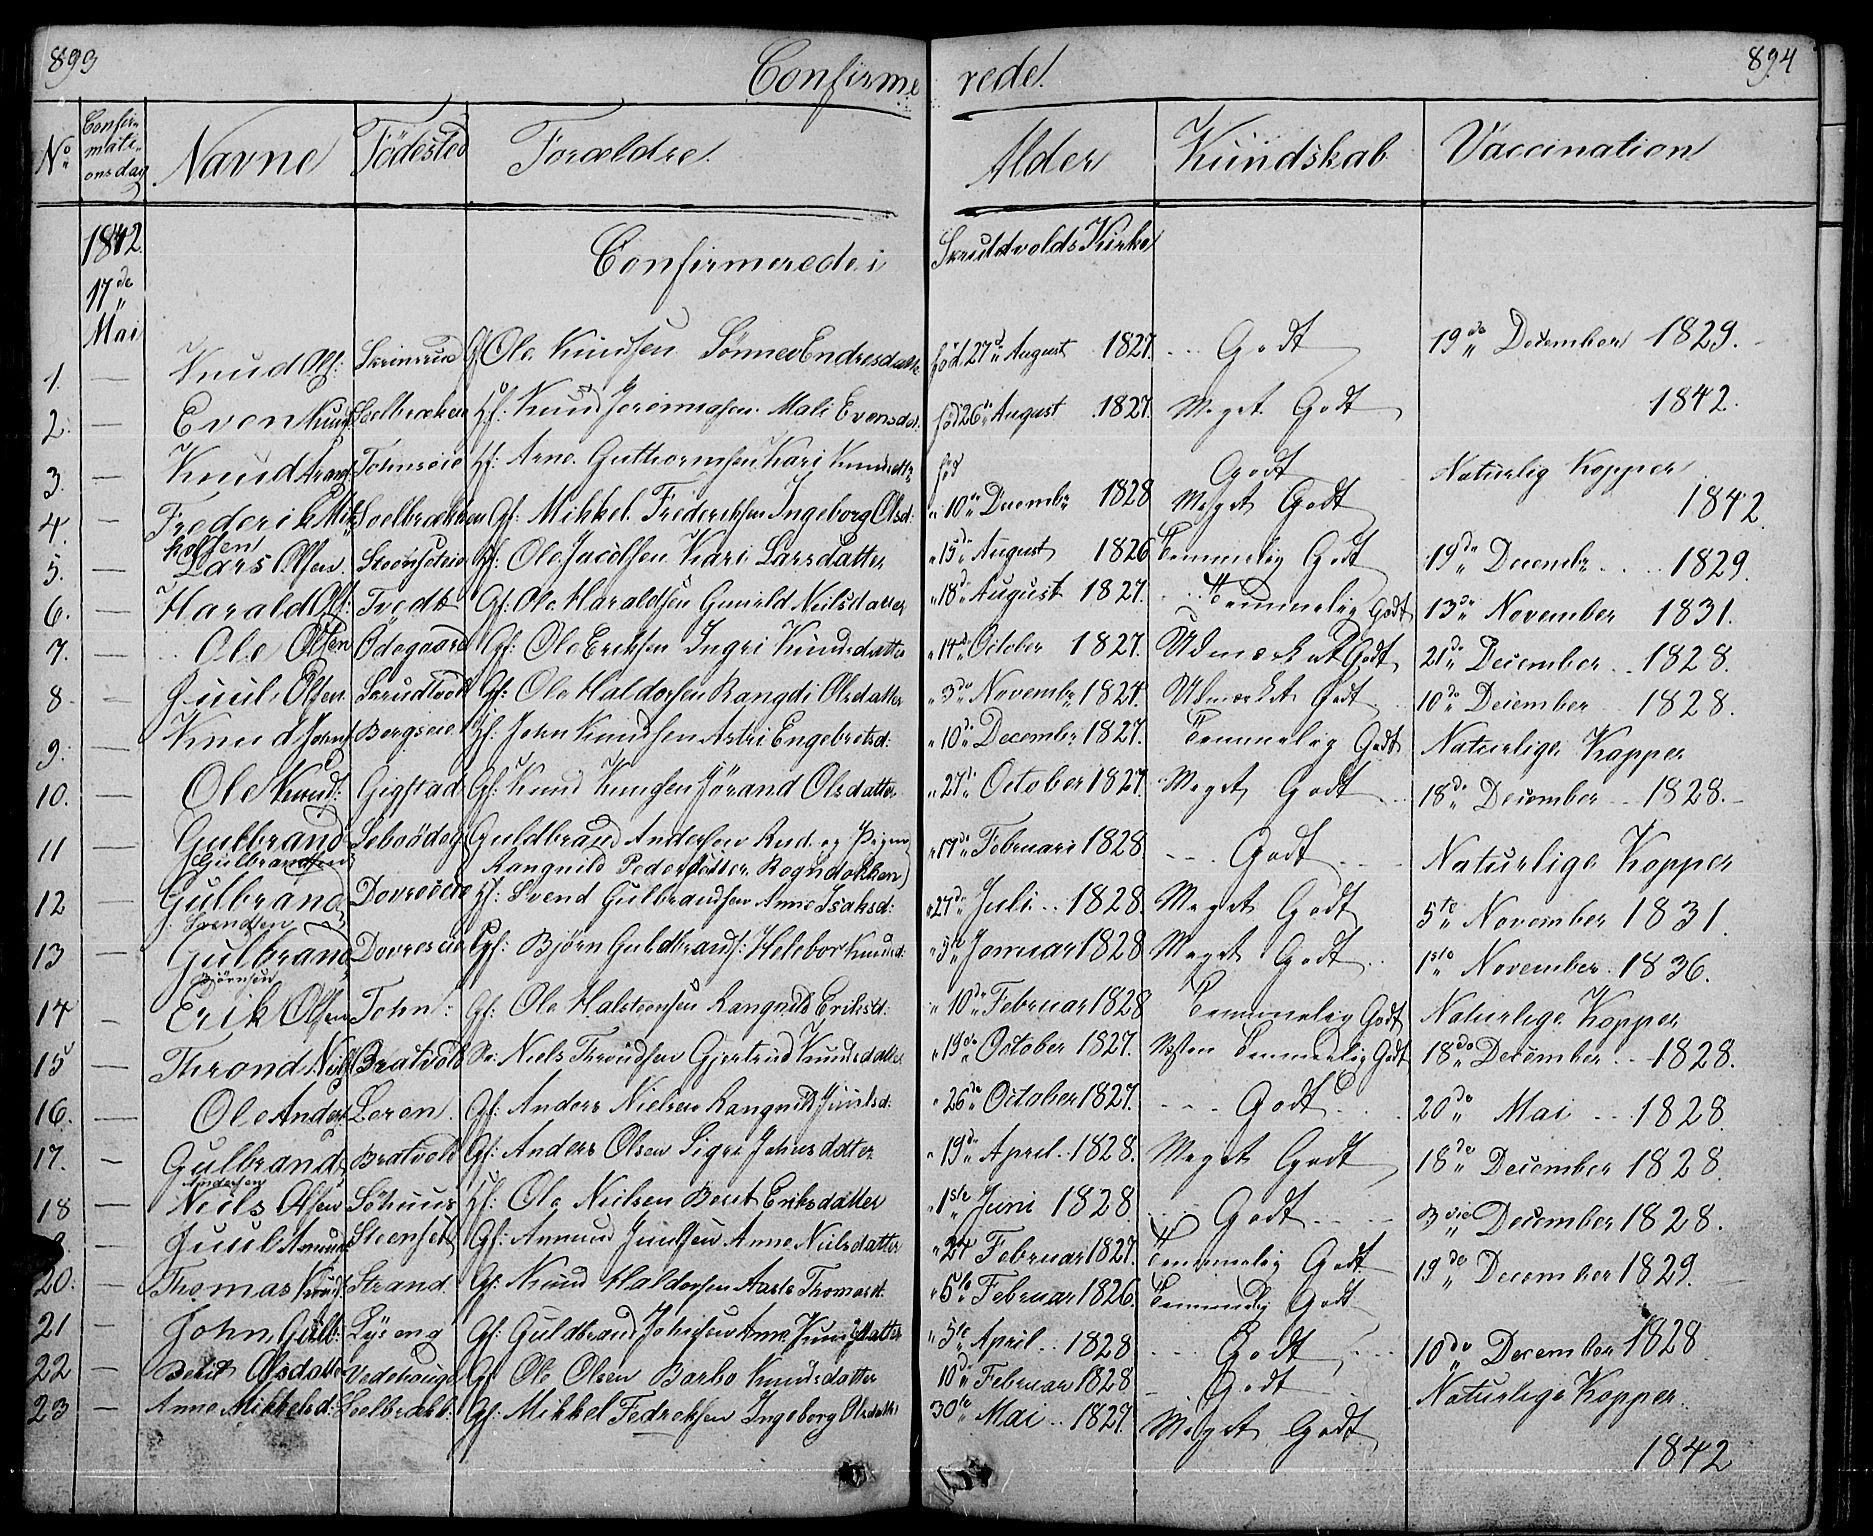 893
Confirme rede.
894
No Confirmationsdag Navne Födested Forældre. Alder Kundskab Vaccination
1842. Confirmerede i Skrutvolds Kirke
17de Mai
1. — Knud Ols: Gf Ole Knudsen Endresdatter föd. 27de August 1827. Godt 19de December 1829.
2. — Even Knuds Loelbrækken Hf: Knud Mali Evensdat: föd 26de August 1827. Meget Godt 1842.
3. — Knud Arnes Tohnseie Hf: Arne Guttormsen Kari Knudsdattr föd Godt Naturlig Kopper
4. — Frederik Mikkelsen Loelbrækken Gf: Mikkel Frederiksen Ingeborg Olsd: 10de Decembr 1828 Meget Godt 1842.
5. — Lars Olsen Hf: Ole Jacobsen Kari Larsdatter 15de August 1826 Temmelig Godt 19de Decembr 1829.
6. — Harald Ols: Tvedt Gf: Ole Haraldsen Gunild Neilsdatter 18de August 1827. Temmelig Godt 13de November 1831.
7. — Ole Olsen Ödegaard Gf: Ole Eriksen Ingri Knudsdatter 14de October 1827. Udmærket Godt 21de December 1828.
8. — Juul Olsen Skrutvold Gf: Ole Haldorsen Rangdi Olsdatter 3de Novembr 1827. Udmærket Godt 10de December 1828.
9. — Knud Johns Bergseie Hf: John Knudsen Astri Engebretsd: 10de Decembr 1827. Temmelig Godt Naturlige Kopper
10. — Ole Knud: Gigstad Gf: Knud Knudsen Jörand Olsdatter 27de October 1827. Meget Godt 18de December 1828.
11 — Gulbrand Gulbrandsen Guldbrand Andersen Rud og Pigen Rangnild Pedersdatter Rogndokken 17de Februari 1828. Godt Naturlige Kopper
12 — Gulbrand Svendsen Dovreseie Hf: Svend Gulbrandsen Anne Isaksd: 27de Juli 1828. Meget Godt 5te November 1831.
13 — Gulbrand Björnsen Dovreseie Gf: Björn Guldbrands: Helebor Knudsd: 5te Januar 1828 Meget Godt 1ste November 1836.
14 — Erik Olsen Tohn: Gf: Ole Halsteensen Rangnild Eriksd: 10de Februar 1828 Temmelig Godt Naturlige Kopper
15 — Thrond Niels Bratvold Niels Throndsen Gjertrud Knudsdatter 19de October 1827. Næsten Temmelig Godt 18de December 1828.
16. — Ole Anders Loren Gf: Anders Nielsen Rangnild Juulsd: 26de October 1827. Godt 20de Mai 1828.
17. — Gulbrand Andersen Bratvold Gf: Anders Olsen Sigri Johnsdatter 19de April 1828. Meget Godt 18de December 1828.
18 — Neils Olsen Söhuus Hf: Ole Neilsen Beret Eriksdatter 1ste Juni 1828. Godt 3die December 1828.
— Juul Amunds Steenset Gf: Amund Juulsen Anne Nielsdatter 24 Februar 1827. Temmelig Godt 19de December 1829.
20. — Thomas Knuds Strand. Gf: Knud Haldorsen Aaste Thomasd. 5te Februar 1826. Temmelig Godt
21 — John Gulb: Lyseng Gf: Guldbrand Johnsen Anne Knudsdatter 5te April 1828 Godt 10de December 1828
22 — Berit Olsdatter Vedehauge Gf Ole Olsen Barbo Knudsdatter 10de Februar 1828 Godt Naturlige Kopper.
23 — Anne Mikkelsd: Loelbrækk: Gf: Mikkel Fedreksen Ingeborg Olsdatter 30te Mai 1827. Meget Godt 1842